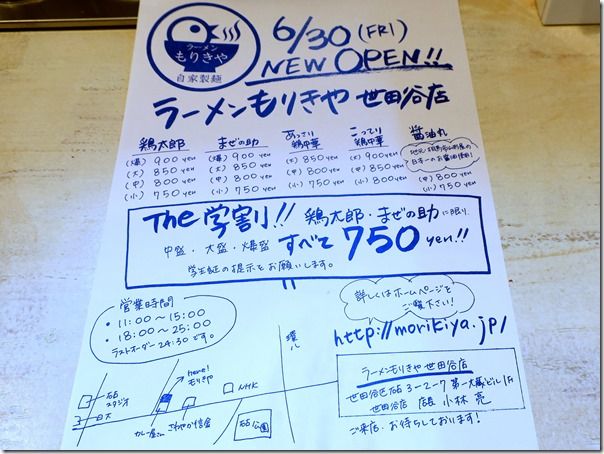 ラーメン
もりきや
自家製麺
6/30 (FRI)
NEW OPEN!!
ラーメンもりきや 世田谷店
鶏太郎
(爆) 900 yen
(大) 850 yen
(中) 800 yen
(小) 750 yen
まぜの助
(爆) 900 yen
(大) 850 yen
(中) 800 yen
(小) 750 yen
あっさり
鶏中華
(大) 850 yen
(中) 800 yen
(小) 750 yen
こってり
鶏中華
(大) 900 yen
(中) 850 yen
(小) 800 yen
醤油丸
日本一のお醤油使用!
(中) 800 yen
(小) 750 yen
The 学割!! 鶏太郎・まぜの助に限り、
中盛・大盛・爆盛 すべて 750 yen!!
学生証の提示をお願いします。
営業時間
・11:00〜15:00
・18:00〜25:00
ラストオーダー 24:30 です。
詳しくはホームページを
ご覧下さい!
http://morikiya.jp/
ラーメンもりきや 世田谷店
世田谷区砧 3-2-7 第一大蔵ビル 1F
世田谷店 店長 小林 亮
ご来店、お待ちしております!
環八
here!
もりきや
砧
スタジオ
NHK
日大
カレー屋さん
さわやか信金
砧公園